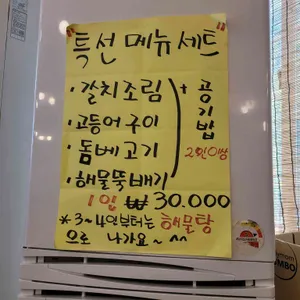 "특선 메뉴 세트"
· 갈치조림
· 고등어 구이
· 돔베고기
· 해물뚝배기
+ 공기밥
2인이상
1인 ₩ 30.000
* 3~4인부터는 해물탕
으로 나가요~ ^^